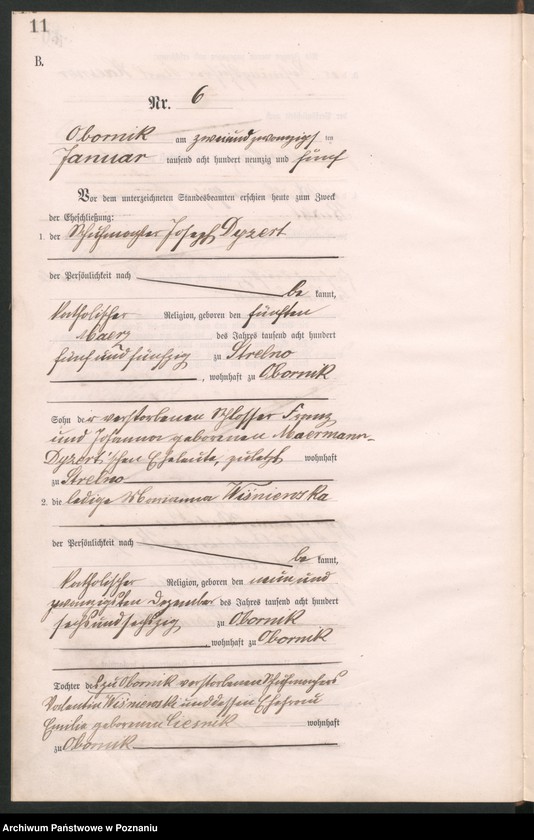 11
B.
Nr. 6
Obornik am zweiundzwanzigsten
Januar tausend acht hundert neunzig und fünf
Vor dem unterzeichneten Standesbeamten erschien heute zum Zweck
der Eheschließung:
1. der Schuhmacher Joseph Dyzert
der Persönlichkeit nach
be kannt,
katholischer Religion, geboren den fünften
Maerz des Jahres tausend acht hundert
fünf und fünfzig zu Strelno
, wohnhaft zu Obornik
Sohn der verstorbenen Schlosser Franz
und Johanna geborenen Maermann-
Dyzert'schen Eheleute, zuletzt wohnhaft
zu Strelno
2. die ledige Marianna Wiśniewska
der Persönlichkeit nach
be kannt,
katholischer Religion, geboren den neun und
zwanzigsten Dezember des Jahres tausend acht hundert
sechsundsechzig zu Obornik
, wohnhaft zu Obornik
Tochter des zu Obornik verstorbenen Schuhmachers
Valentin Wiśniewski und dessen Ehefrau
Emilie geborenen Ciesnik wohnhaft
zu Obornik
Archiwum Państwowe w Poznaniu